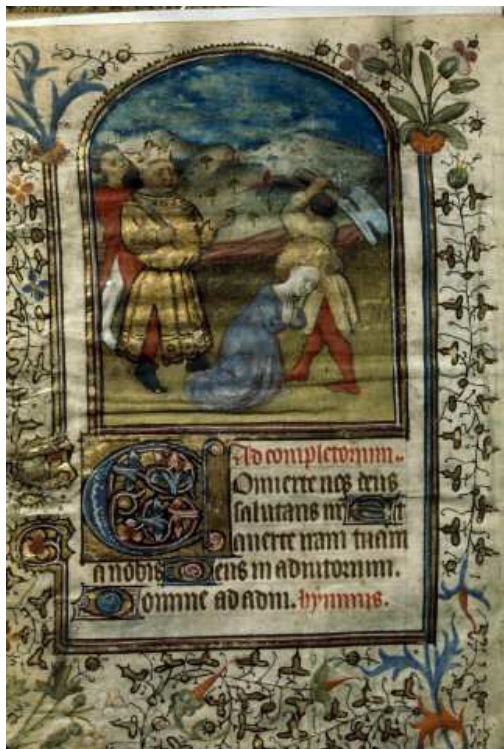 Ad completorium.
Conuerte nos deus
salutaris nr Et
auerte iram tuam
a nobis Deus in adiutorium.
Domine ad adiu. hymnus.